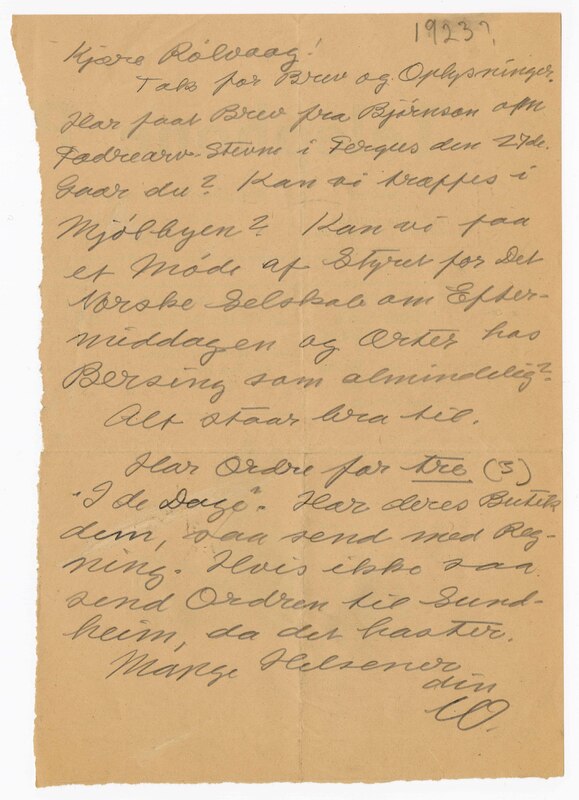 1923?
Kjære Rølvaag!
Tak for Brev og Oplysninger.
Har faat Brev fra Bjørnson om
Fædrearv-Stevne i Fergus den 27de.
Gaar du? Kan vi træffes i
Mjølbyen? Kan vi faa
et Møde af Styret for Det
Norske Selskab om Efter-
middagen og Ærter hos
Bersing som almindelig?
Alt staar bra til.
Har Ordre for tre (3)
"I de Dage". Har deres Butik
dem, saa send med Reg-
ning. Hvis ikke saa
send Ordren til Sund-
heim, da det haster.
Mange Helsener
din